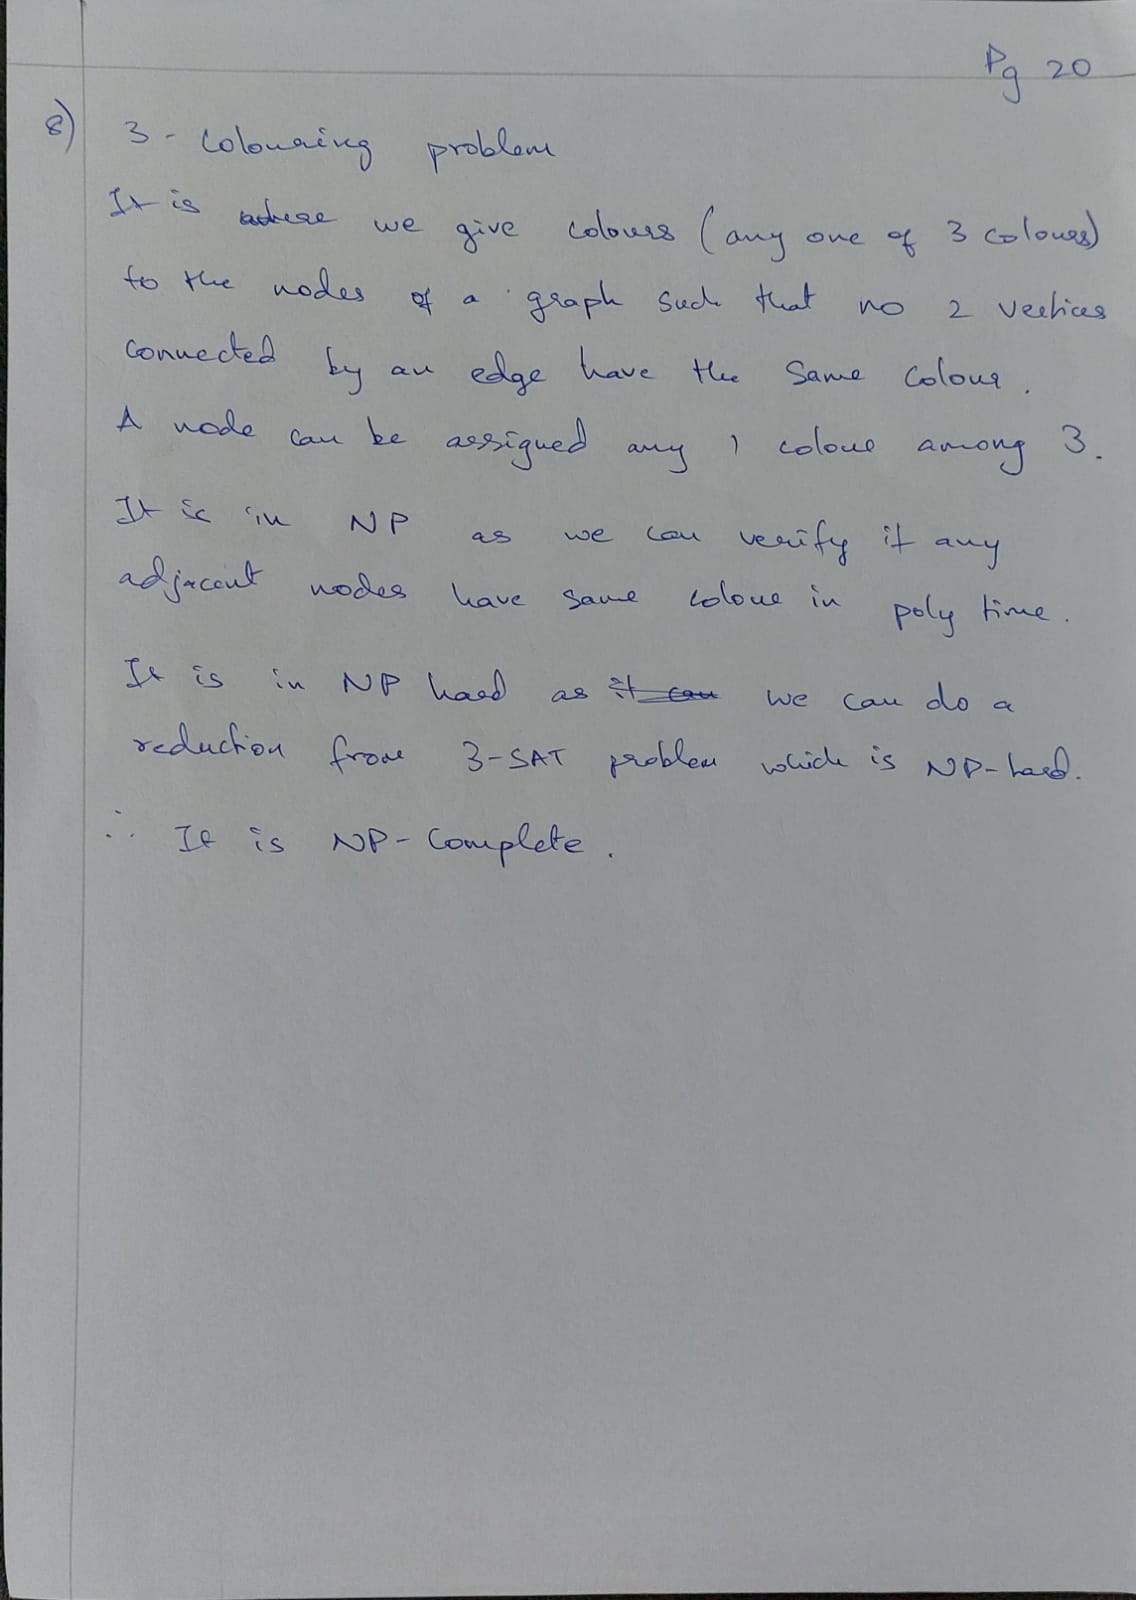 Pg 20
8) 3 - Colouring problem
It is where we give colours (any one of 3 colours)
to the nodes of a graph such that no 2 vertices
connected by an edge have the same colour.
A node can be assigned any 1 colour among 3.
It is in NP as we can verify if any
adjacent nodes have same colour in poly time.
It is in NP hard as it can we can do a
reduction from 3-SAT problem which is NP-hard.
∴ It is NP-Complete.